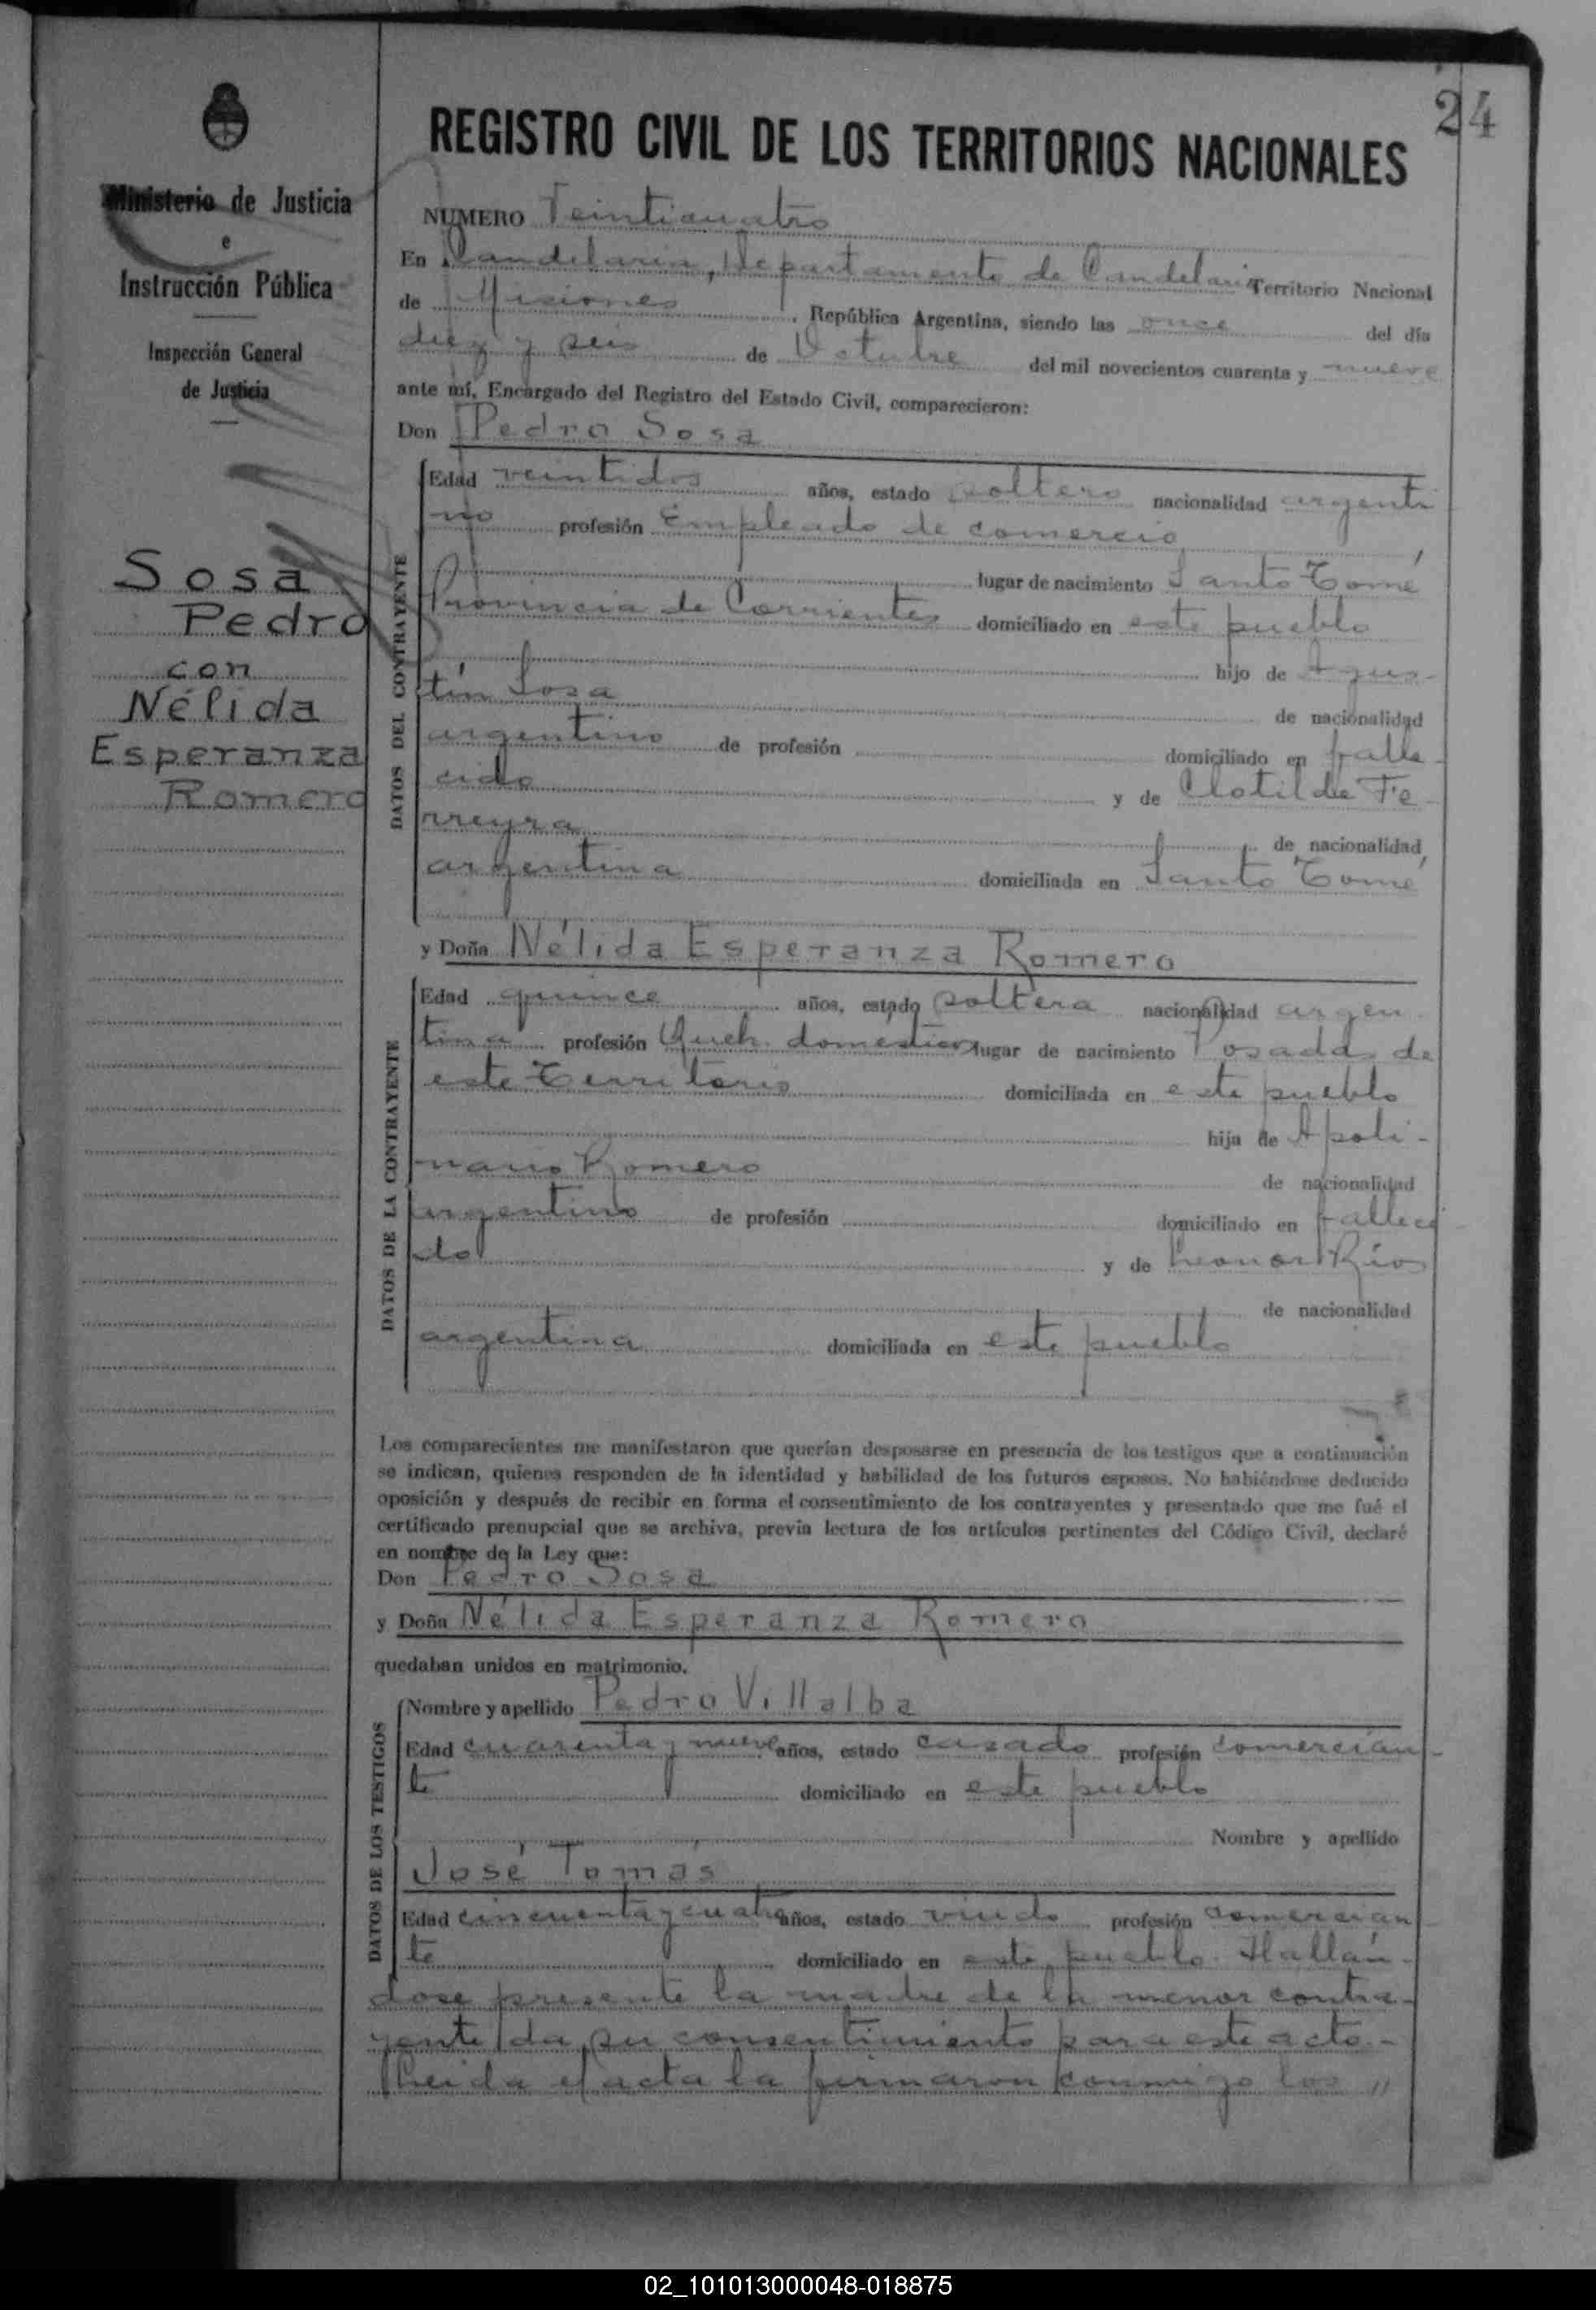 24
REGISTRO CIVIL DE LOS TERRITORIOS NACIONALES
Ministerio de Justicia
e
Instrucción Pública
Inspección General
de Justicia
Sosa
Pedro
con
Nélida
Esperanza
Romero
NUMERO Veinticuatro
En Candelaria, Departamento de Candelaria Territorio Nacional
de Misiones, República Argentina, siendo las once del día
diez y seis de Octubre del mil novecientos cuarenta y nueve
ante mí, Encargado del Registro del Estado Civil, comparecieron:
Don Pedro Sosa
DATOS DEL CONTRAYENTE
Edad veintidos años, estado soltero nacionalidad argenti
no profesión Empleado de comercio
lugar de nacimiento Santo Tomé
Provincia de Corrientes domiciliado en este pueblo
hijo de Agus-
tín Sosa de nacionalidad
argentino de profesión domiciliado en falle-
cido y de Clotilde Fe-
rreyra de nacionalidad
argentina domiciliada en Santo Tomé
y Doña Nélida Esperanza Romero
DATOS DE LA CONTRAYENTE
Edad quince años, estado soltera nacionalidad argen-
tina profesión Queh. domesticos lugar de nacimiento Posadas de
este Territorio domiciliada en este pueblo
hija de Apoli-
nario Romero de nacionalidad
argentino de profesión domiciliado en falleci
do y de Leonor Ríos
de nacionalidad
argentina domiciliada en este pueblo
Los comparecientes me manifestaron que querían desposarse en presencia de los testigos que a continuación
se indican, quienes responden de la identidad y habilidad de los futuros esposos. No habiéndose deducido
oposición y después de recibir en forma el consentimiento de los contrayentes y presentado que me fué el
certificado prenupcial que se archiva, previa lectura de los artículos pertinentes del Código Civil, declaré
en nombre de la Ley que:
Don Pedro Sosa
y Doña Nélida Esperanza Romero
quedaban unidos en matrimonio.
DATOS DE LOS TESTIGOS
Nombre y apellido Pedro Villalba
Edad cuarenta y nueve años, estado casado profesión comercian-
te domiciliado en este pueblo
Nombre y apellido
José Tomás
Edad cincuenta y cuatro años, estado viudo profesión comercian-
te domiciliado en este pueblo. Hallán-
dose presente la madre de la menor contra-
yente da su consentimiento para este acto.-
Leida el acta la firmaron conmigo los "
02_101013000048-018875